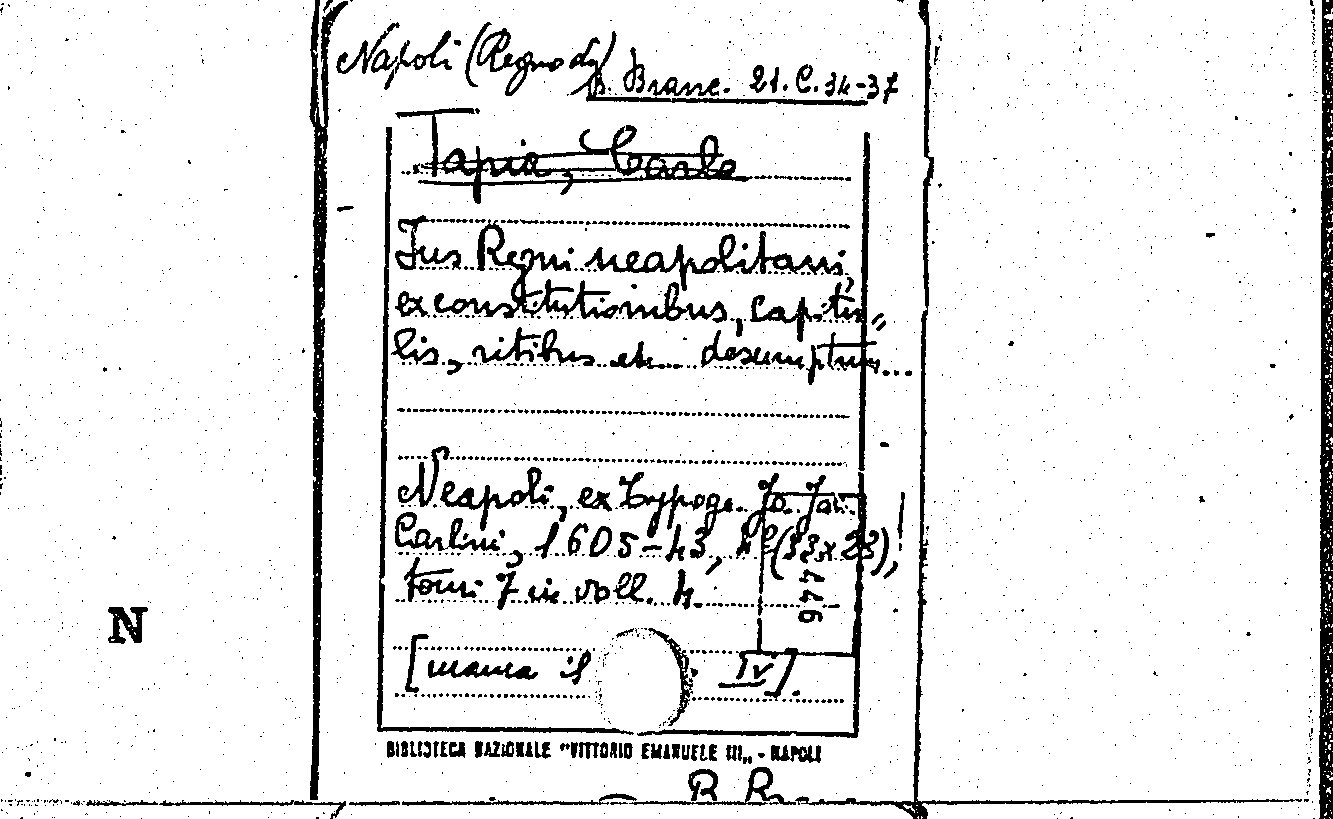 Napoli (Regno di)
B. Branc. 21. C. 34-37
Tapia, Carlo
Jus Regni neapolitani,
ex constitutionibus, capitu=
lis, ritibus etc... desumptum...
Neapoli, ex Typogr. Jo. Jac.
Carlini, 1605-43, 4º (33x23),
tomi 7 in voll. 4.
[manca il IV].
9774
N
BIBLIOTECA NAZIONALE "VITTORIO EMANUELE III„ - NAPOLI